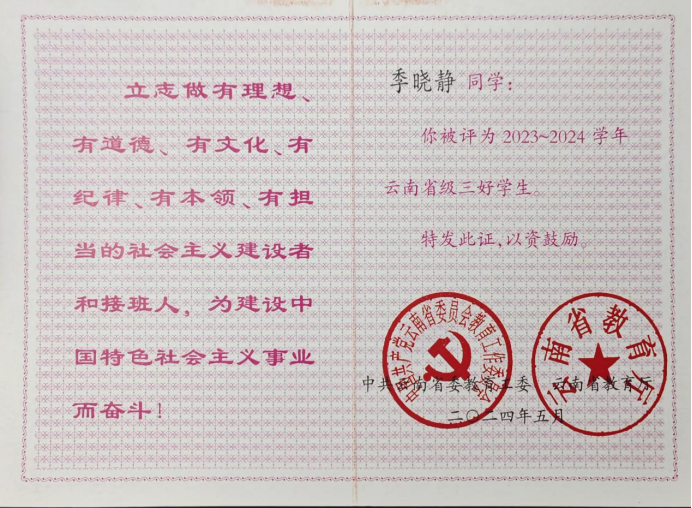 立志做有理想、
有道德、有文化、有
纪律、有本领、有担
当的社会主义建设者
和接班人，为建设中
国特色社会主义事业
而奋斗！
季晓静 同学：
你被评为 2023~2024 学年
云南省级三好学生。
特发此证，以资鼓励。
中国共产党云南省委员会教育工作委员会
云南省教育厅
中共云南省委教育工委 云南省教育厅
二〇二四年五月